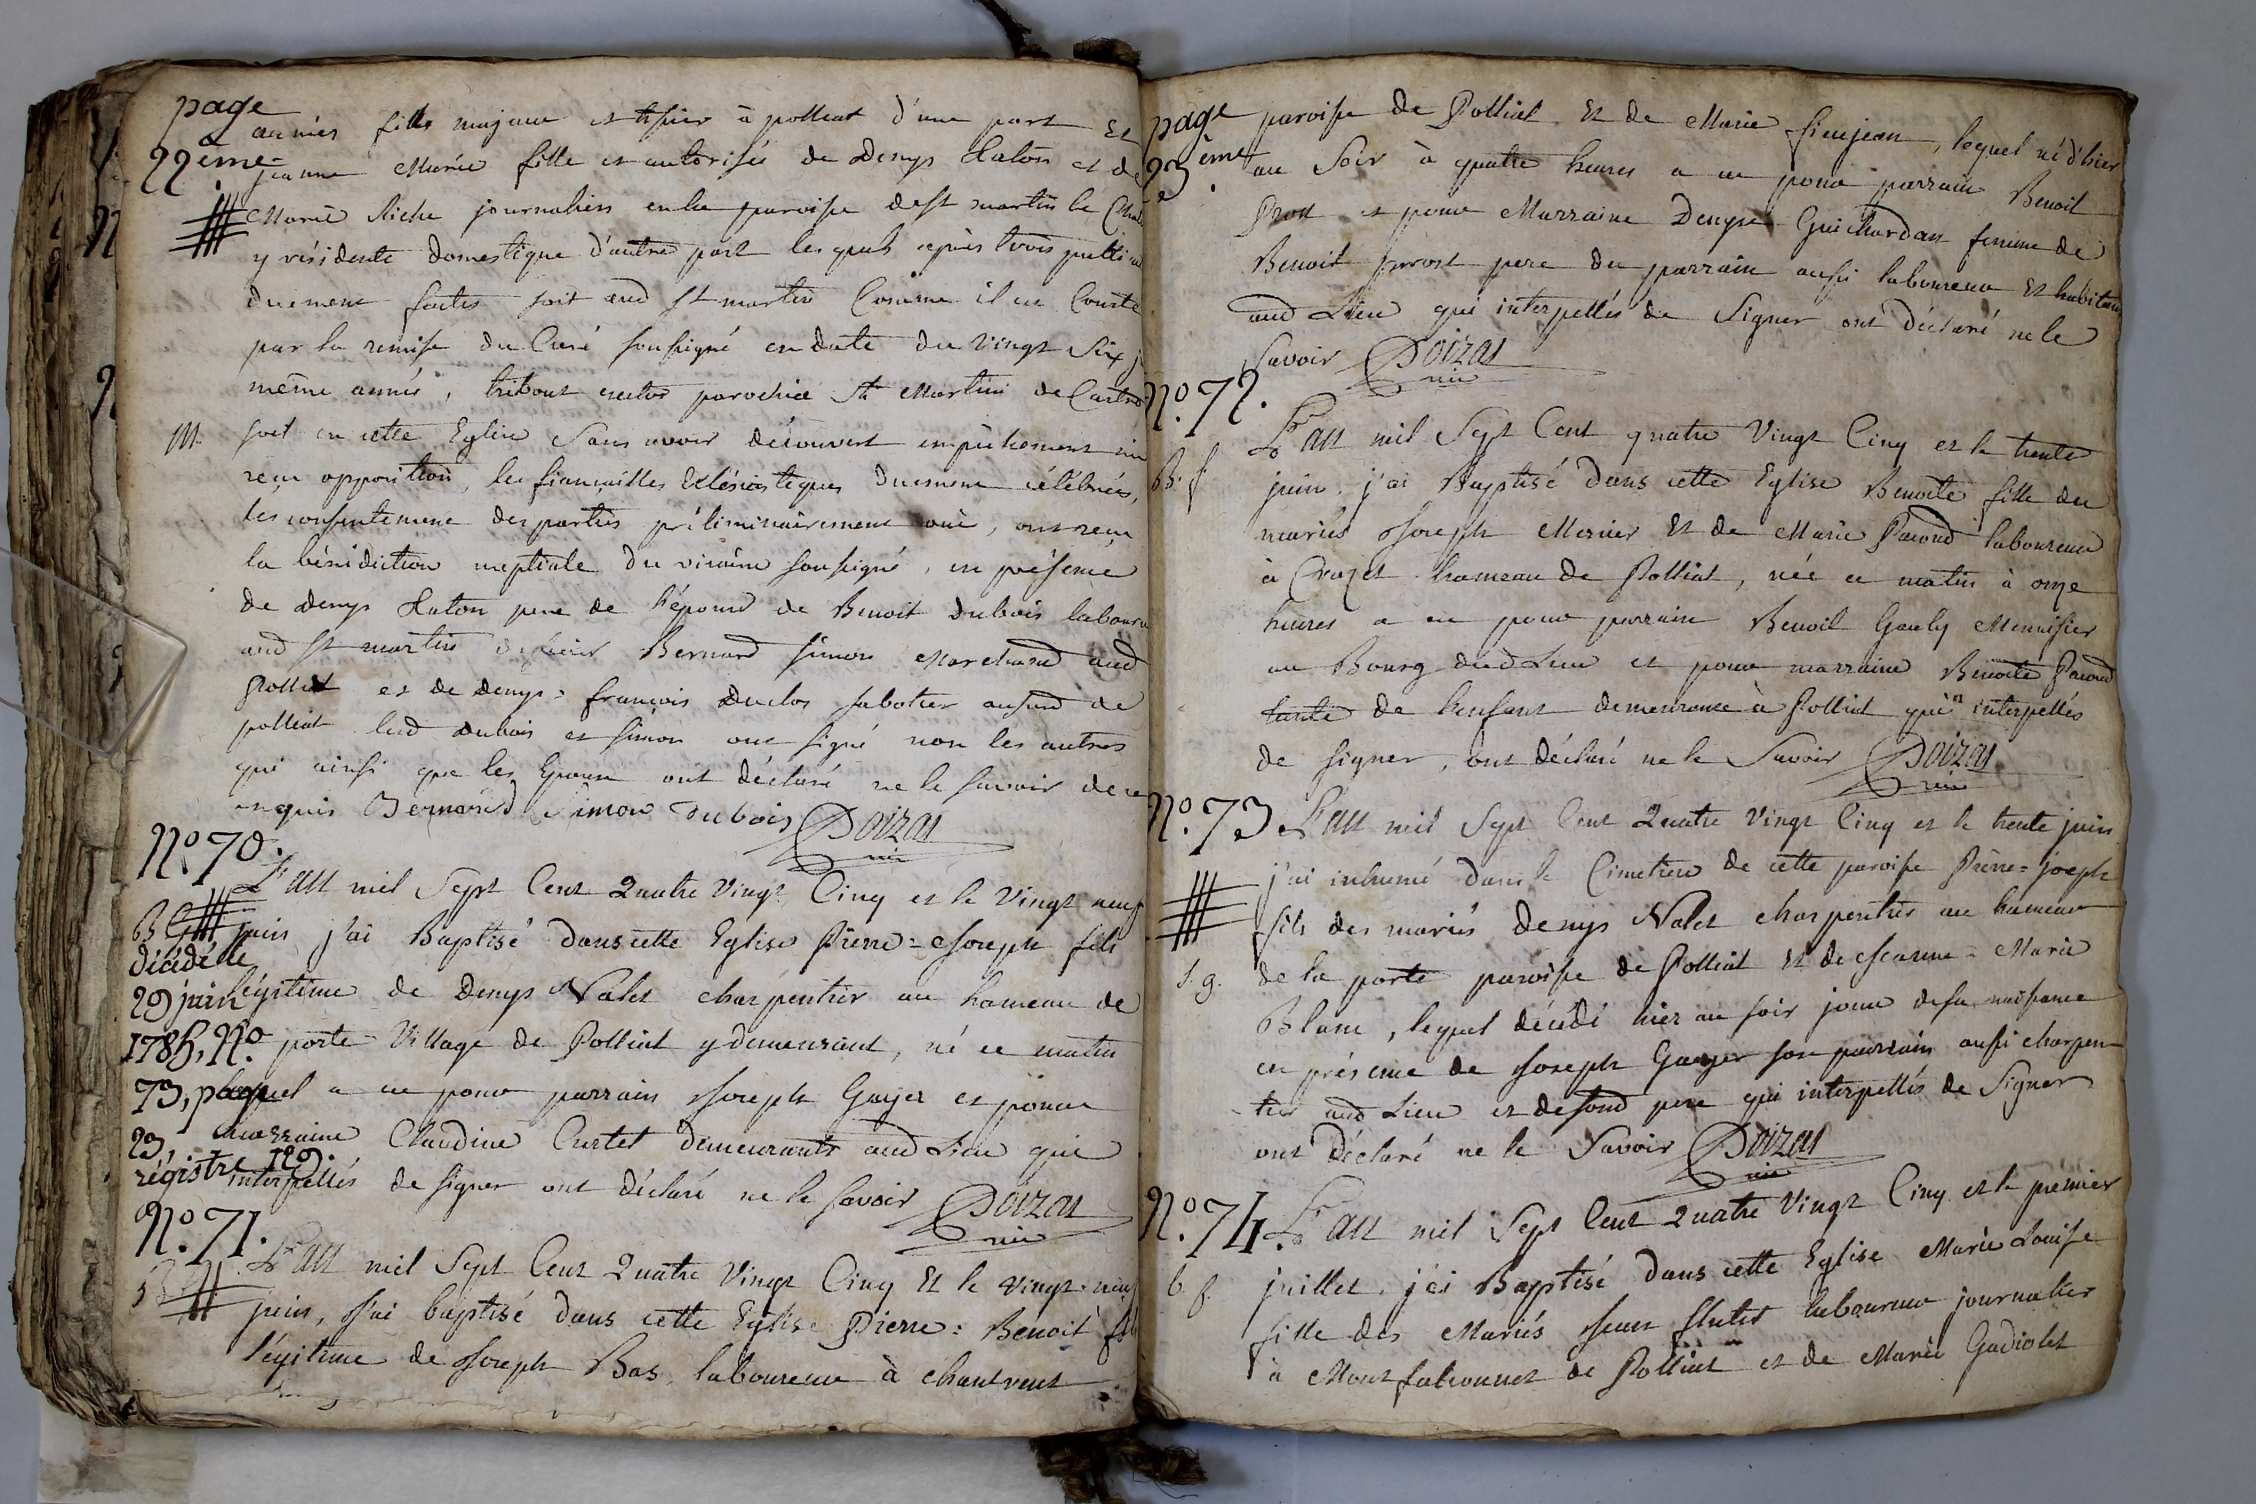 page
22ème
aimés fille majeur et tissier à polliat d'une part Et
jeanne Marie fille et autorisée de Denys Haton et de
Marie Riche journaliers en la paroisse de st martin le Chate
y résidente domestique d'autre part les quels après trois publi
duement faites soit aud st martin Comme il en Conste
par la remise du Curé soussigné en date du vingt Six j
même année, tribout rector parochiæ Sti Martini de Castro
M. soit en cette Eglise Sans avoir découvert empêchement ni
reçu opposition, les fiançailles Eclésiastiques duement célébrées,
les consentement des parties préliminairement ouï, ont reçu
la bénédiction nuptiale du vicaire soussigné, en présence
de denys Haton pere de l'épouse de Benoit Dubois laboureur
aud st martin Bernard simon Marchand aud
Polliat et de denys= françois Duclos sabotier aussi de
polliat led dubois et simon ont signé non les autres
qui ainsi que les Epoux ont déclaré ne le savoir de ce
enquis Bernard Simon Dubois Doizat
vic
N° 70.
L'an mil Sept Cent Quatre Vingt Cinq et le Vingt neuf
B G juin j'ai Baptisé dans cette Eglise Pierre=Joseph fils
décédé le
légitime de Denys Nalet charpentier au hameau de
29 juin
1785, N° porte Village de Polliat y demeurant, né ce matin
73, page lequel a eu pour parrain Joseph Goyer et pour
23 marraine Claudine Curtet demeurants aud Lieu qui
régistre 129.
interpellés de signer ont déclaré ne le savoir Doizat
vic
N°. 71.
L'an mil Sept Cent Quatre Vingt Cinq Et le vingt neuf
juin, J'ai baptisé dans cette Eglise Pierre= Benoit fils
légitime de Joseph Bas laboureur à chantvent
page
23ème
paroisse de Polliat Et de Marie sieujean, lequel né d'hier
au Soir à quatre heures a eu pour parrain Benoit
Prost et pour Marraine Denyse Guichardan femme de
Benoit prost pere du parrain aussi laboureur Et habitans
aud Lieu qui interpellés de Signer ont déclaré ne le
savoir Doizat
vic
N°. 72.
L'an mil Sept Cent quatre Vingt Cinq et le trente
B. f. juin j'ai Baptisé dans cette Eglise Benoite fille des
mariés Joseph Mernier Et de Marie Pacoud laboureur
à Crozet hameau de Polliat, née ce matin à onze
heures a eu pour parrain Benoit Gauly Menuisier
au Bourg dud Lieu et pour marraine Benoite Pacoud
tante de l'enfant demeurante à Polliat qui interpellés
de signer, ont déclaré ne le Savoir Doizat
vic
N°. 73 L'an mil Sept Cent Quatre Vingt Cinq et le trente juin
j'ai inhumé dans le Cimetiere de cette paroisse Pierre=joseph
fils des mariés Denys Nalet charpentier au hameau
S. g. de la porte paroisse de Polliat Et de Jeanne=Marie
Blanc, lequel décédé hier au soir jour de sa naissance
en présence de Joseph Goyer son parrain aussi charpen
tier aud Lieu et de sond pere qui interpellés de Signer
ont déclaré ne le Savoir Doizat
vic
N°. 74. L'an mil Sept Cent Quatre Vingt Cinq et le premier
b. f. juillet j'ai Baptisé dans cette Eglise Marie Louise
fille des Mariés Jean flutet laboureur journalier
à Montfalconnet de Polliat et de Marie Gadiolet